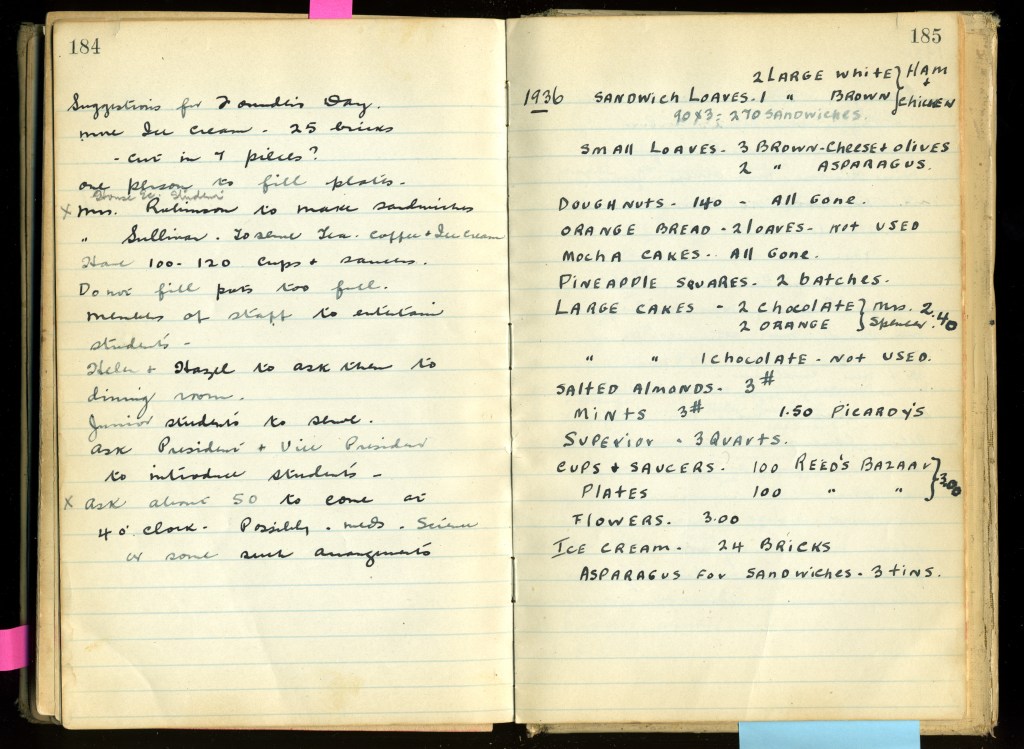 184
Suggestions for Founders Day.
more Ice Cream - 25 bricks
- cut in 7 pieces?
one person to fill plates -
House Ec. Student
x Mrs. Robinson to make sandwiches
" Sullivan . To serve Tea. Coffee + Ice Cream
Have 100 - 120 cups + saucers.
Do not fill pots too full.
members of staff to entertain
students -
Helen + Hazel to ask them to
dining room.
Junior students to serve.
ask President + Vice President
to introduce students -
x ask about 50 to come at
4 o'clock - Possibly . meds . Science
or some such arrangements
185
2 LARGE white } HAM
1936 SANDWICH LOAVES. 1 " BROWN } + CHICKEN
90 x 3 = 270 SANDWICHES.
SMALL LOAVES - 3 BROWN - Cheese + olives
2 " ASPARAGUS.
DOUGHNUTS - 140 - All Gone.
ORANGE BREAD - 2 loAVES - not USED
MOCHA CAKES - All Gone.
PINEAPPLE SQUARES. 2 batches.
LARGE CAKES - 2 Chocolate } Mrs. 2.40
2 ORANGE } Spencer.
" " 1 chocolate - not USED.
SALTED Almonds. 3#
MINTS 3# 1.50 PICARDY'S
SUPERIOR - 3 QUARTS.
CUPS + SAUCERS. 100 REED'S BAZAAR } 3.00
PLATES 100 " " }
FLOWERS. 3.00
ICE CREAM - 24 BRICKS
ASPARAGUS FOR SANDWICHES - 3 tINS.